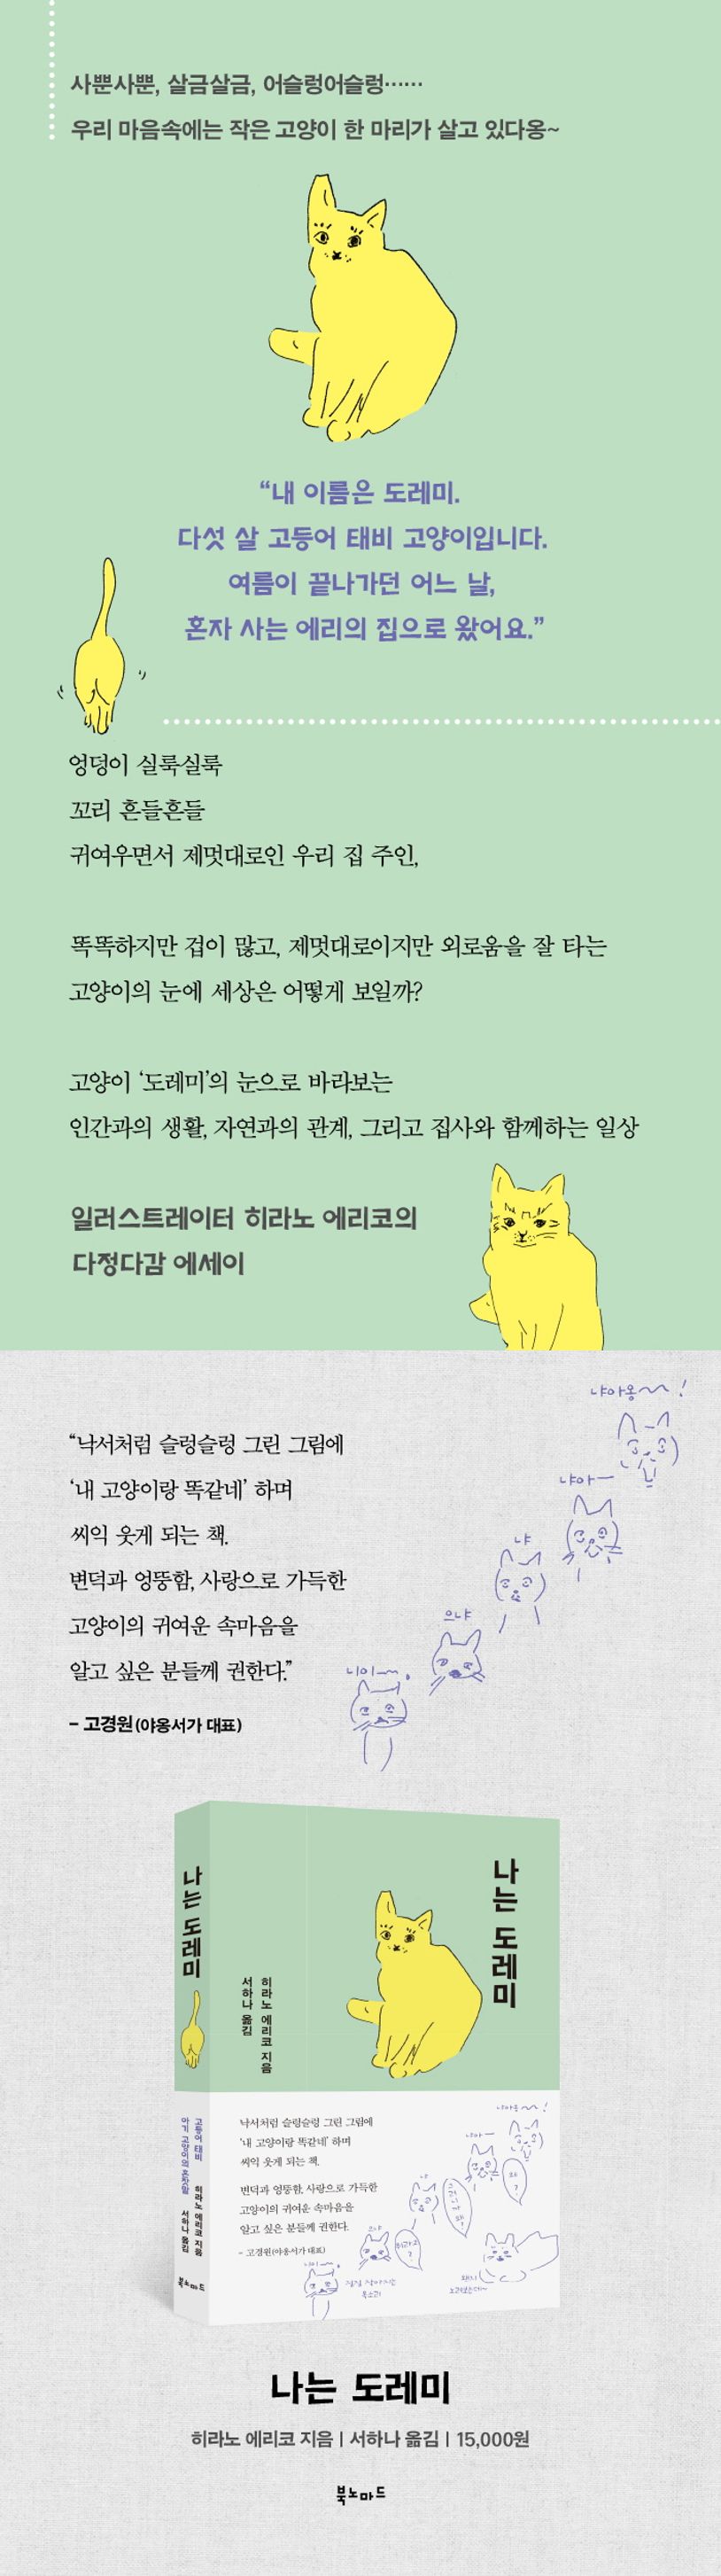 사뿐사뿐, 살금살금, 어슬렁어슬렁……
우리 마음속에는 작은 고양이 한 마리가 살고 있다옹~
“내 이름은 도레미.
다섯 살 고등어 태비 고양이입니다.
여름이 끝나가던 어느 날,
혼자 사는 에리의 집으로 왔어요.”
엉덩이 실룩실룩
꼬리 흔들흔들
귀여우면서 제멋대로인 우리 집 주인,
똑똑하지만 겁이 많고, 제멋대로이지만 외로움을 잘 타는
고양이의 눈에 세상은 어떻게 보일까?
고양이 ‘도레미’의 눈으로 바라보는
인간과의 생활, 자연과의 관계, 그리고 집사와 함께하는 일상
일러스트레이터 히라노 에리코의
다정다감 에세이
냐아옹~~!
냐아—
냐
으냐
니이~~.
“낙서처럼 슬렁슬렁 그린 그림에
‘내 고양이랑 똑같네’ 하며
씨익 웃게 되는 책.
변덕과 엉뚱함, 사랑으로 가득한
고양이의 귀여운 속마음을
알고 싶은 분들께 권한다.”
– 고경원(야옹서가 대표)
나는 도레미
나는 도레미
히라노 에리코 지음
서하나 옮김
고등어 태비
아기 고양이의 혼잣말
히라노 에리코 지음
서하나 옮김
북노마드
낙서처럼 슬렁슬렁 그린 그림에
‘내 고양이랑 똑같네’ 하며
씨익 웃게 되는 책.
변덕과 엉뚱함, 사랑으로 가득한
고양이의 귀여운 속마음을
알고 싶은 분들께 권한다.
– 고경원(야옹서가 대표)
냐아옹~~!
냐아—
냐
으냐
니이~~.
점점 커지는
목소리
나는 도레미
히라노 에리코 지음 | 서하나 옮김 | 15,000원
북노마드